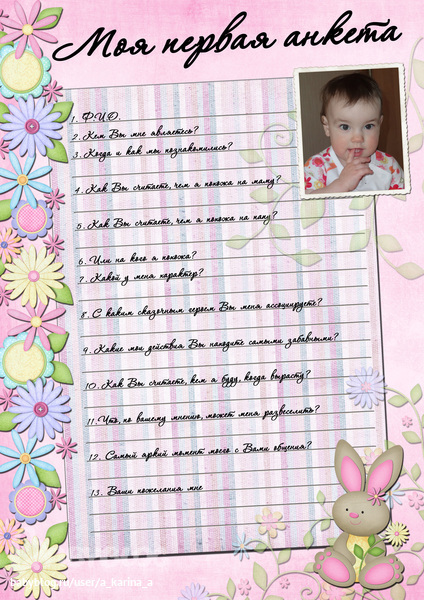 Моя первая анкета
1. Ф.И.О.
2. Кем Вы мне являетесь?
3. Когда и как мы познакомились?
4. Как Вы считаете, чем я похожа на маму?
5. Как Вы считаете, чем я похожа на папу?
6. Или на кого я похожа?
7. Какой у меня характер?
8. С каким сказочным героем Вы меня ассоциируете?
9. Какие мои действия Вы находите самыми забавными?
10. Как Вы считаете, кем я буду, когда вырасту?
11. Что, по вашему мнению, может меня развеселить?
12. Самый яркий момент моего с Вами общения?
13. Ваши пожелания мне
babyblog.ru/user/a_karina_a